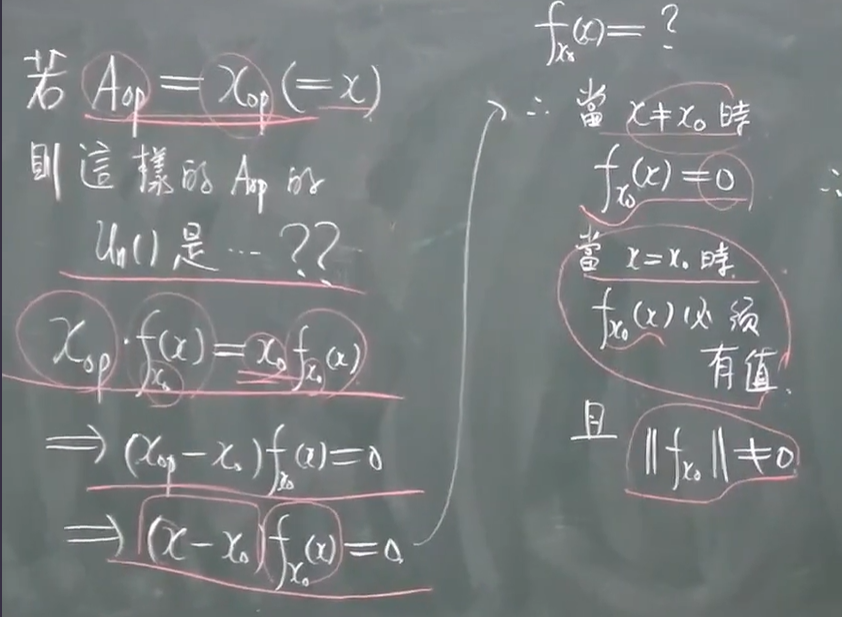 若 A_op = x_op (= x)
則這樣的 A_op 的
u_n( ) 是 … ??
x_op · f_x₀(x) = x₀ f_x₀(x)
⇒ (x_op − x₀) f_x₀(x) = 0
⇒ (x − x₀) f_x₀(x) = 0
f_x₀(x) = ?
∴ 當 x ≠ x₀ 時
f_x₀(x) = 0
∴
當 x = x₀ 時
f_x₀(x) 必須
有值.
且 ‖f_x₀‖ ≠ 0